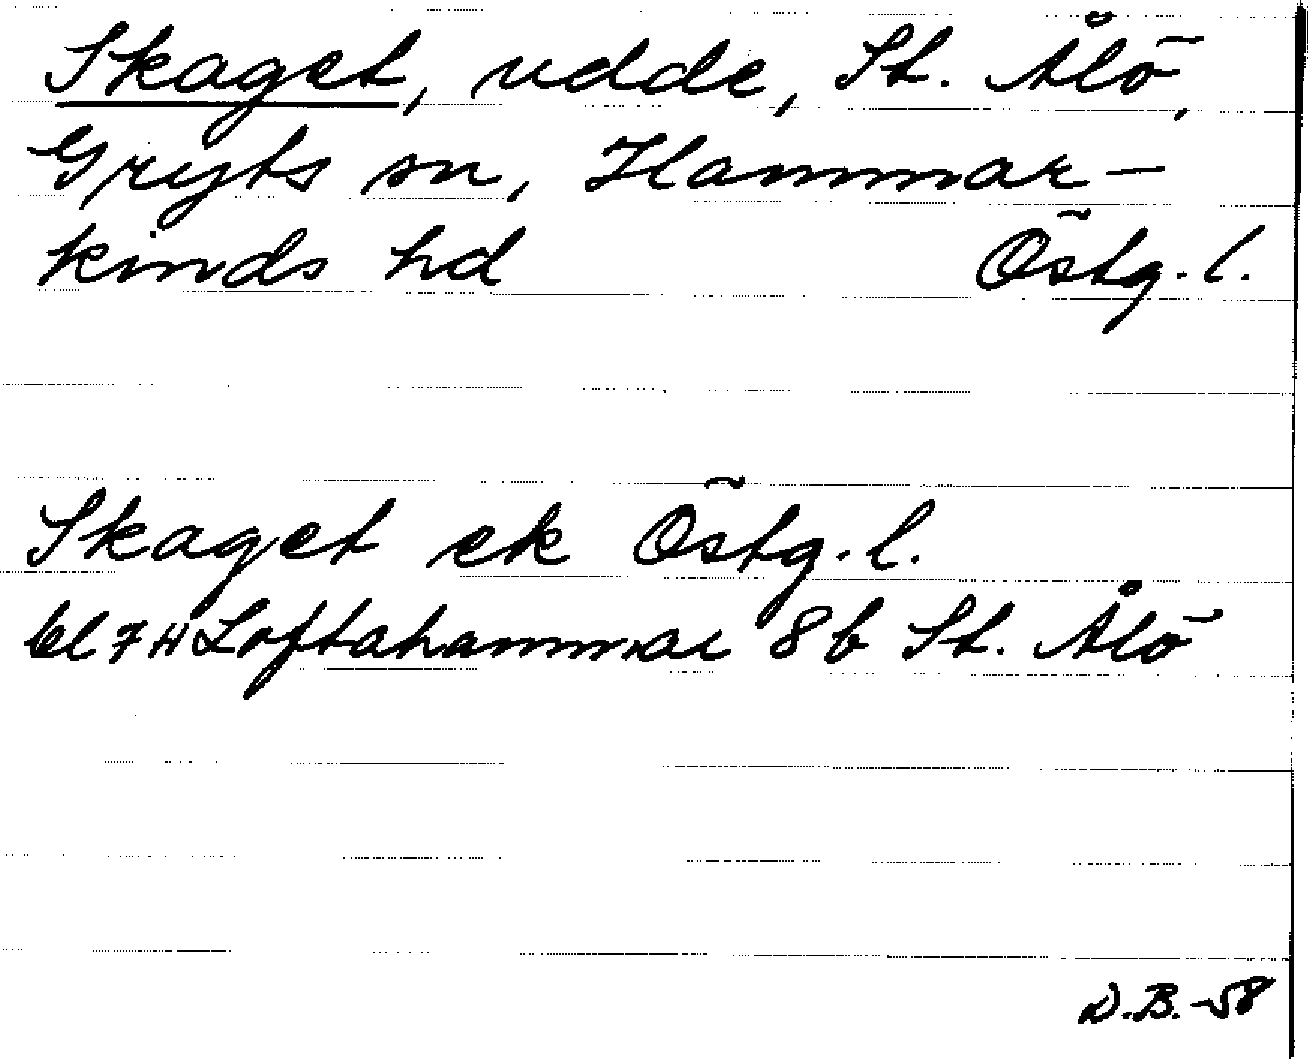 Skaget, udde, St. Ålö,
Gryts sn, Hammar-
kinds hd Östg. l.
Skaget ek Östg. l.
bl 7 H Loftahammar 8 b St. Ålö
D.B. -58